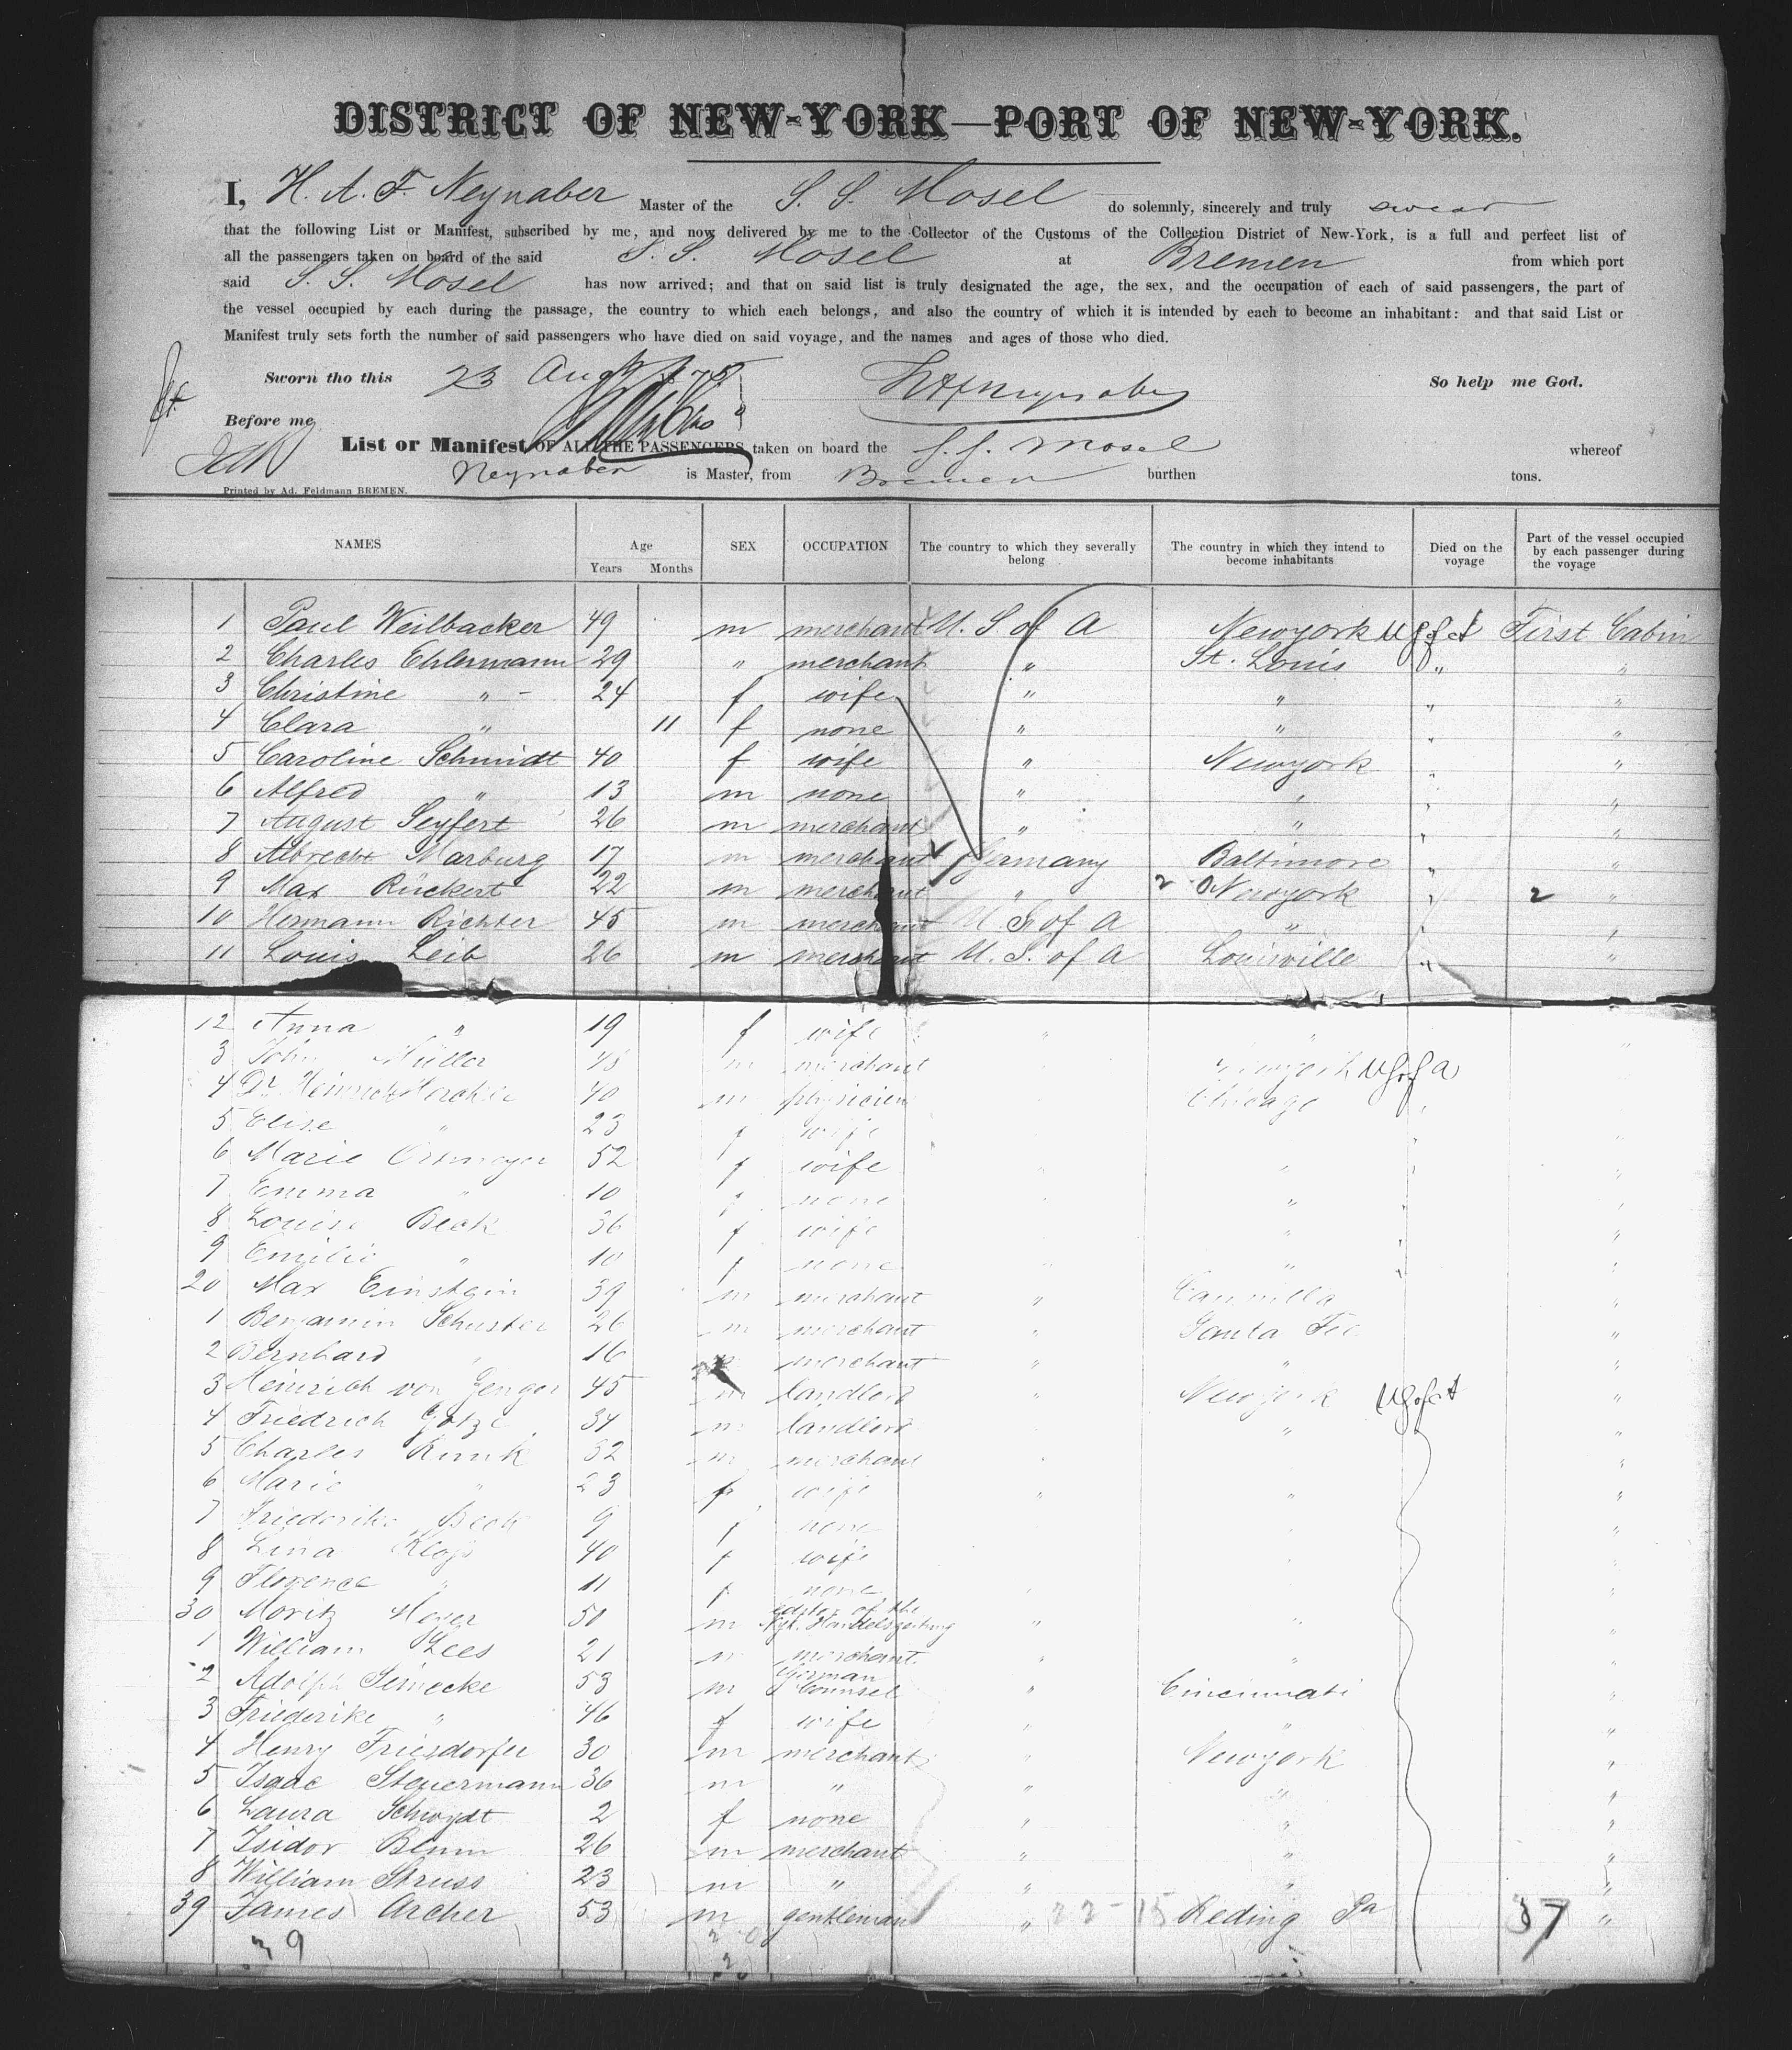 DISTRICT OF NEW-YORK—PORT OF NEW-YORK.
I, H. A. F. Neynaber Master of the S. S. Mosel do solemnly, sincerely and truly swear
that the following List or Manifest, subscribed by me, and now delivered by me to the Collector of the Customs of the Collection District of New-York, is a full and perfect list of
all the passengers taken on board of the said S. S. Mosel at Bremen from which port
said S. S. Mosel has now arrived; and that on said list is truly designated the age, the sex, and the occupation of each of said passengers, the part of
the vessel occupied by each during the passage, the country to which each belongs, and also the country of which it is intended by each to become an inhabitant: and that said List or
Manifest truly sets forth the number of said passengers who have died on said voyage, and the names and ages of those who died.
Sworn tho this 23 Aug So help me God.
Before me
List or Manifest OF ALL THE PASSENGERS taken on board the S. S. Mosel whereof
Neynaber is Master, from Bremen burthen tons.
Printed by Ad. Feldmann BREMEN.
NAMES Age SEX OCCUPATION The country to which they severally belong The country in which they intend to become inhabitants Died on the voyage Part of the vessel occupied by each passenger during the voyage
Years Months
1 Paul Weilbacker 49 m merchant U. S. of A Newyork First Cabin
2 Charles Ehlermann 29 " merchant " St. Louis " "
3 Christine " 24 f wife " " " "
4 Clara " 11 f none " " " "
5 Caroline Schmidt 40 f wife " Newyork " "
6 Alfred " 13 m none " " " "
7 August Seyfert 26 m merchant " " " "
8 Albrecht Marburg 17 m merchant Germany Baltimore " "
9 Max Rückert 22 m merchant " 2 Newyork " 2 "
10 Hermann Richter 45 m merchant U S of A " " "
11 Louis Leib 26 m merchant U. S. of A Louisville " "
12 Anna " 19 f wife " " "
3 John Müller m merchant U S of A
4 Dr. Heinrich 40 m physicien Chicago "
5 Elise " 23 f wife
6 Marie 52 f wife "
7 Emma " 10 f none " "
8 Louise Beck 36 f wife " "
9 Emilie " 10 f none " "
20 Max Einstein 39 m merchant " "
1 Benjamin Schuster 26 m merchant " Santa Fee "
2 Bernhard " 16 merchant " " "
3 Heinrich von Genger 45 m landlord " Newyork "
4 Friedrich Götze 34 m landlord " "
5 Charles Runk m merchant "
6 Marie " 23 f wife " " "
7 Friederike Beck 9 f none "
8 Lina 40 f wife "
9 Florence " 11 f none "
30 Moritz Meyer 50 m editor of the Handelszeitung " " "
1 William Lees 21 m merchant " " "
2 Adolph Seinecke 53 m German Counsel " Cincinnati "
3 Friederike " 46 f wife " " "
4 Henry Friesdorfer 30 m merchant " Newyork "
5 Isaac Steuermann 36 m " " " "
6 Laura 2 f none " " "
7 Isidor 26 m merchant " " "
8 William Struss 23 m " " " "
39 James Archer 53 m gentleman " 22-15 Reding Pa 37 "
39